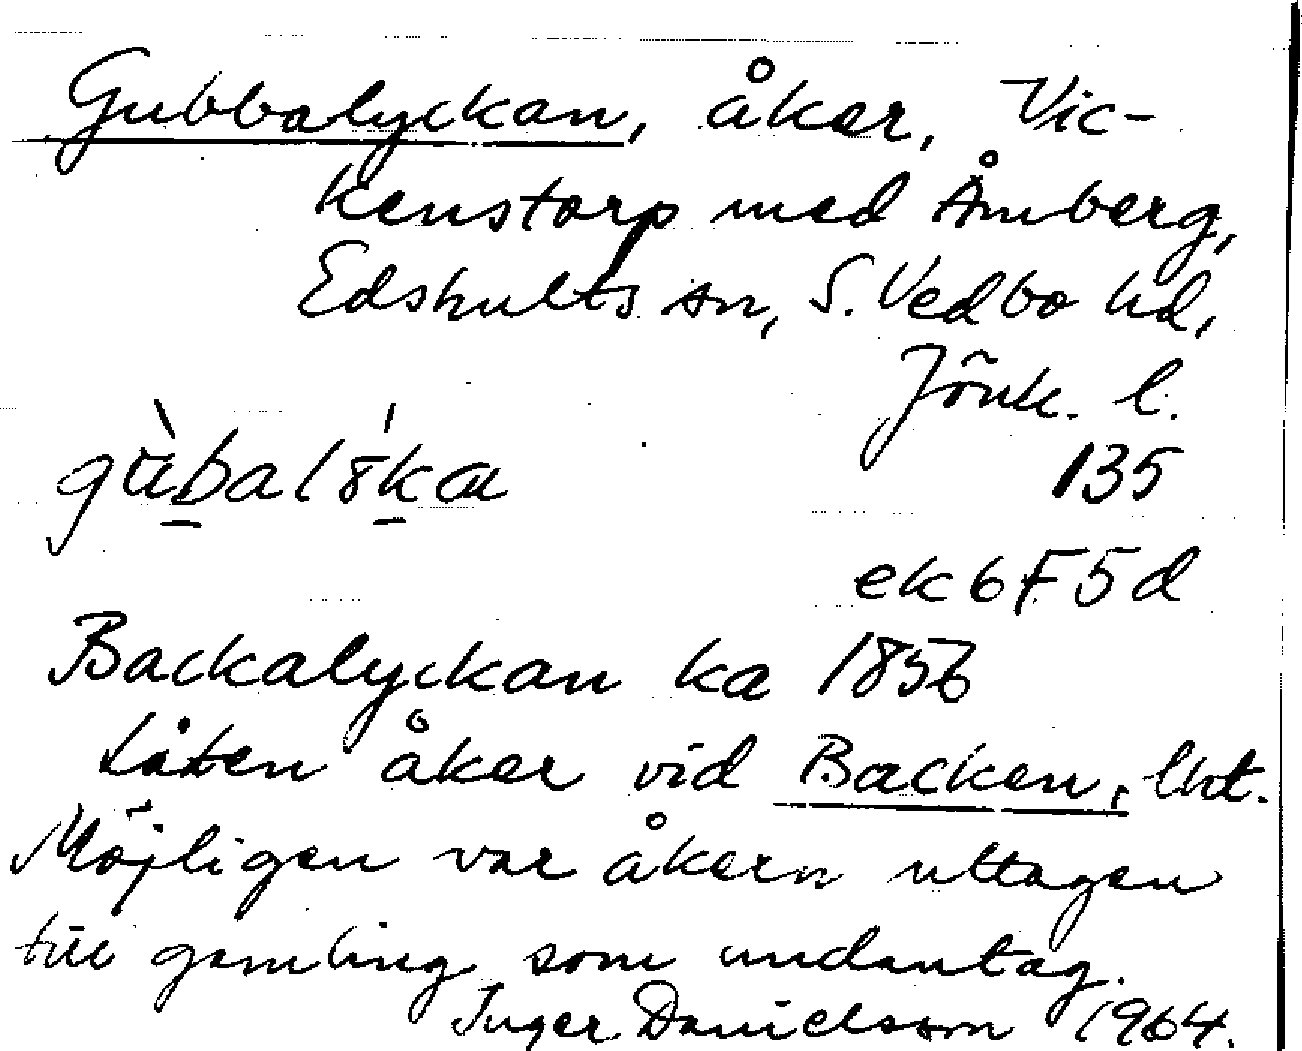 Gubbalyckan, åker, Vic-
kenstorp med Åmberg,
Edshults sn, S. Vedbo hd,
Jönk. l.
gùbalỳka 135
ek 6F5d
Backalyckan ka 1856
Liten åker vid Backen, lht.
Möjligen var åkern uttagen
till gamling som undantag.
Inger Danielsson 1964.